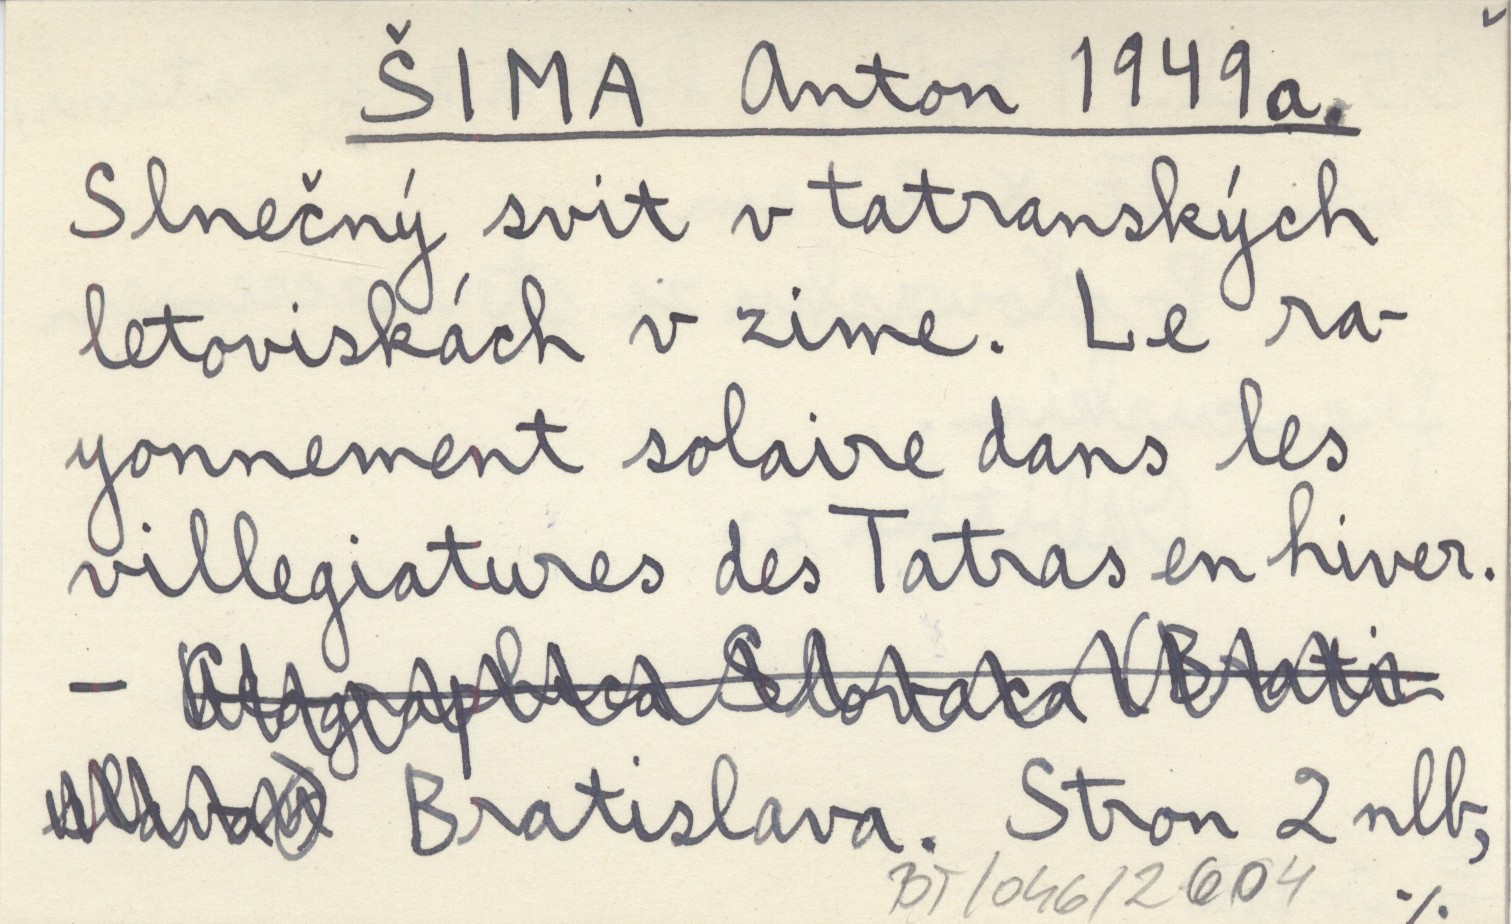 ŠIMA Anton 1949a.
Slnečný svit v tatranských
letoviskách v zime. Le ra-
yonnement solaire dans les
villegiatures des Tatras en hiver.
- Geographica Slovaca (Brati-
slava) Bratislava. Stron 2 nlb,
BT/046/2604
./.